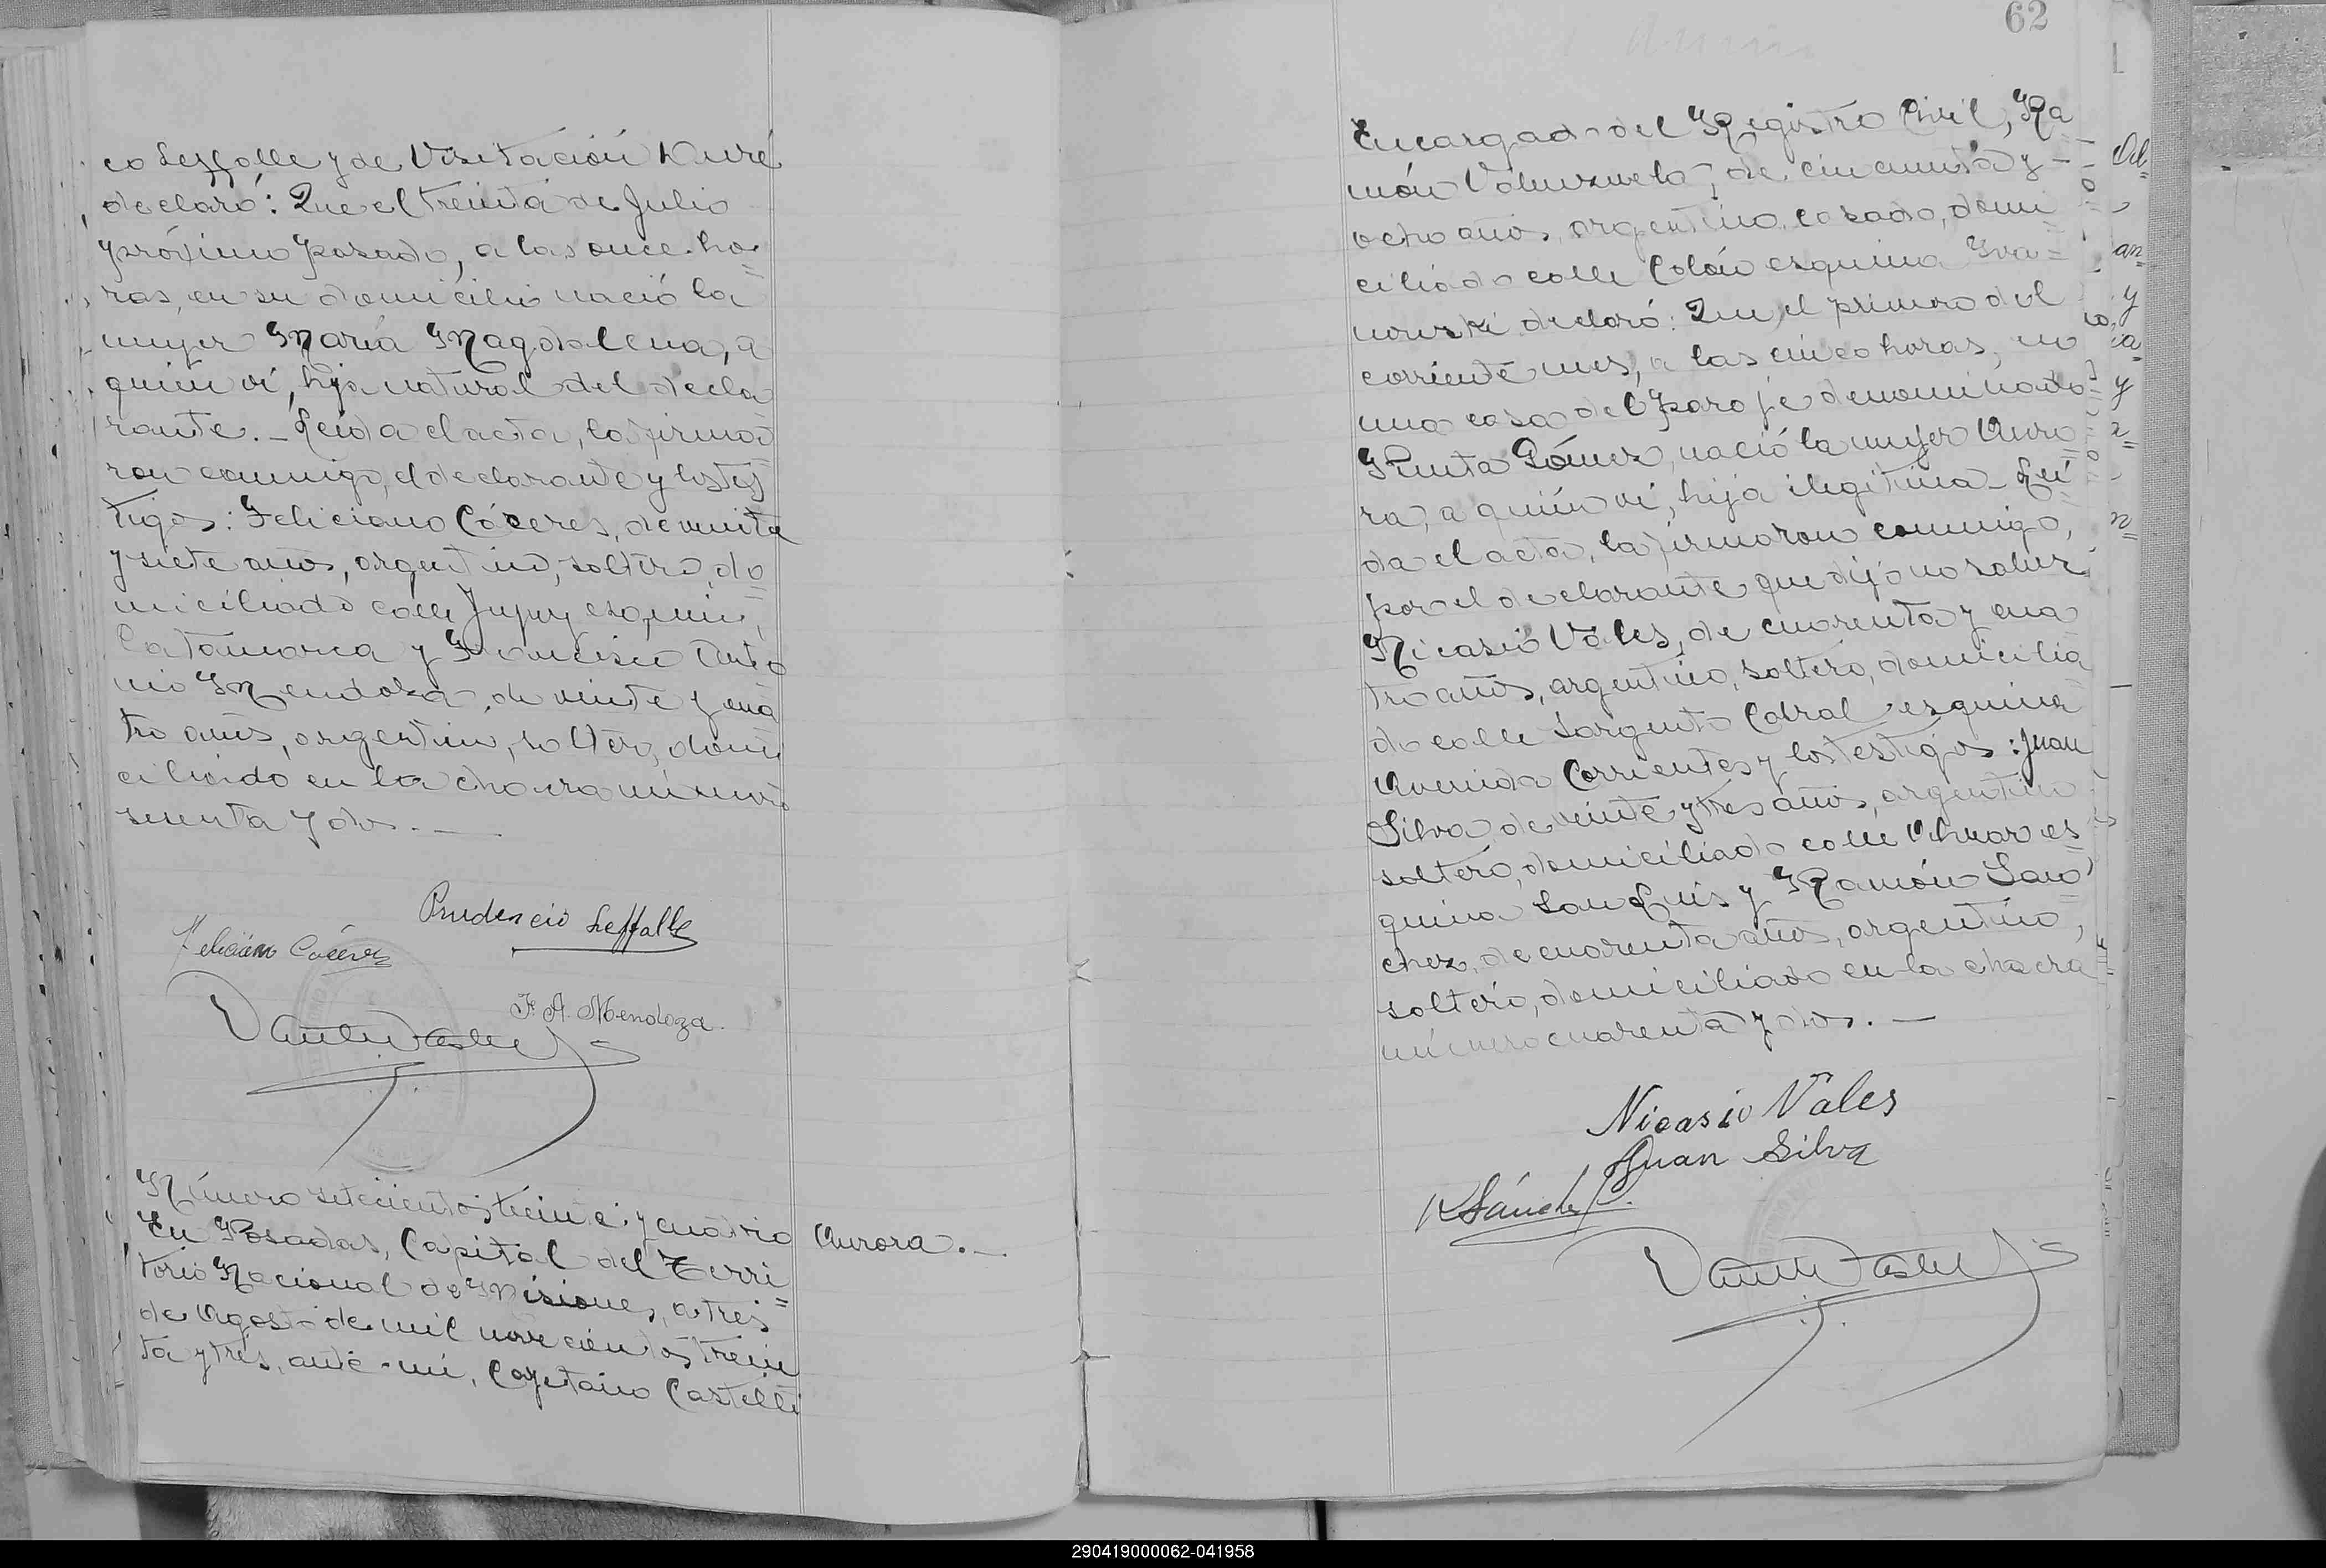 co Leffalle y de Visitación Duré
declaró: Que el treinta de Julio
próximo pasado, a las once ho=
ras, en su domicilio nació la
mujer María Magdalena, a
quién ví, hija natural del decla
rante.- Leída el acta, la firma=
ron conmigo, el declarante y los tes
tigos: Feliciano Cáceres, de veinte
y siete años, argentino, soltero, do=
miciliado calle Jujuy esquina
Catamarca y Francisco Anto
nio Mendoza, de veinte y cua
tro años, argentino, soltero, domi
ciliado en la chacra número
sesenta y dos.-
Prudencio Leffalle
Felician Cáceres
F. A. Mendoza.
Número setecientos treinta y cuatro
En Posadas, Capital del Terri=
torio Nacional de Misiones, a tres
de Agosto de mil novecientos trein
ta y tres, ante mi, Cayetano Castelli
Aurora.-
62
Encargado del Registro Civil, Ra
món Valenzuela, de cincuenta y
ocho años, argentino, casado, domi
ciliado calle Colón esquina
declaró: Que el primero del
corriente mes, a las cinco horas, en
una casa del paraje denominado
Punta Gómez, nació la mujer Auro
ra, a quién ví, hija ilegitima- Leí
da el acta, la firmaron conmigo,
por el declarante que dijo no saber
Nicasio Vales, de cuarenta y cua
tro años, argentino, soltero, domicilia
do calle Sargento Cabral esquina
Avenida Corrientes y los testigos: Juan
Silva, de veinte y tres años, argentino
soltero, domiciliado calle Alvear es
quina San Luis y Ramón San
chez, de cuarenta años, argentino,
soltero, domiciliado en la chacra
número cuarenta y dos.-
Nicasio Vales
Juan Silva
R Sánchez
290419000062-041958